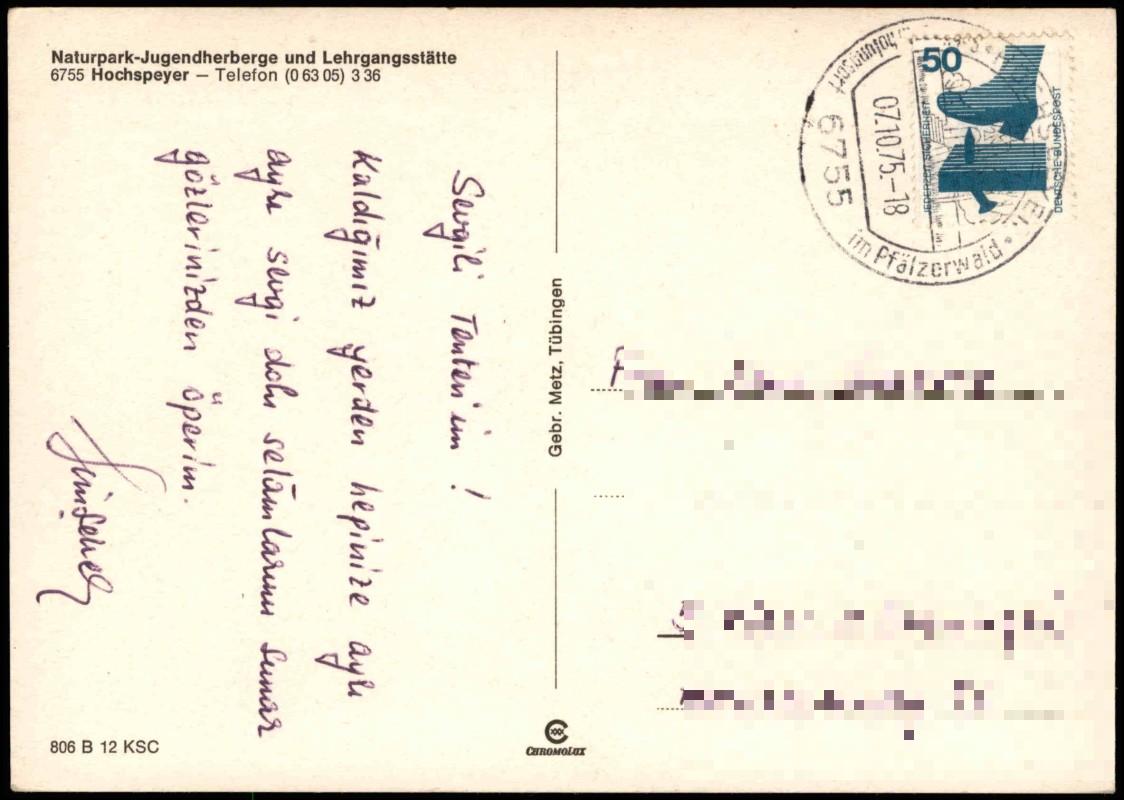 Naturpark-Jugendherberge und Lehrgangsstätte
6755 Hochspeyer — Telefon (0 63 05) 3 36
Sevgili Tanten'im !
Kaldığımız yerden hepinize ayrı
ayrı sevgi dolu selâmlarımı sunar
gözlerinizden öperim.
Gebr. Metz, Tübingen
50
DEUTSCHE BUNDESPOST
JEDERZEIT SICHERHEIT
6755
07.10.75-18
im Pfälzerwald
806 B 12 KSC
CHROMOLUX